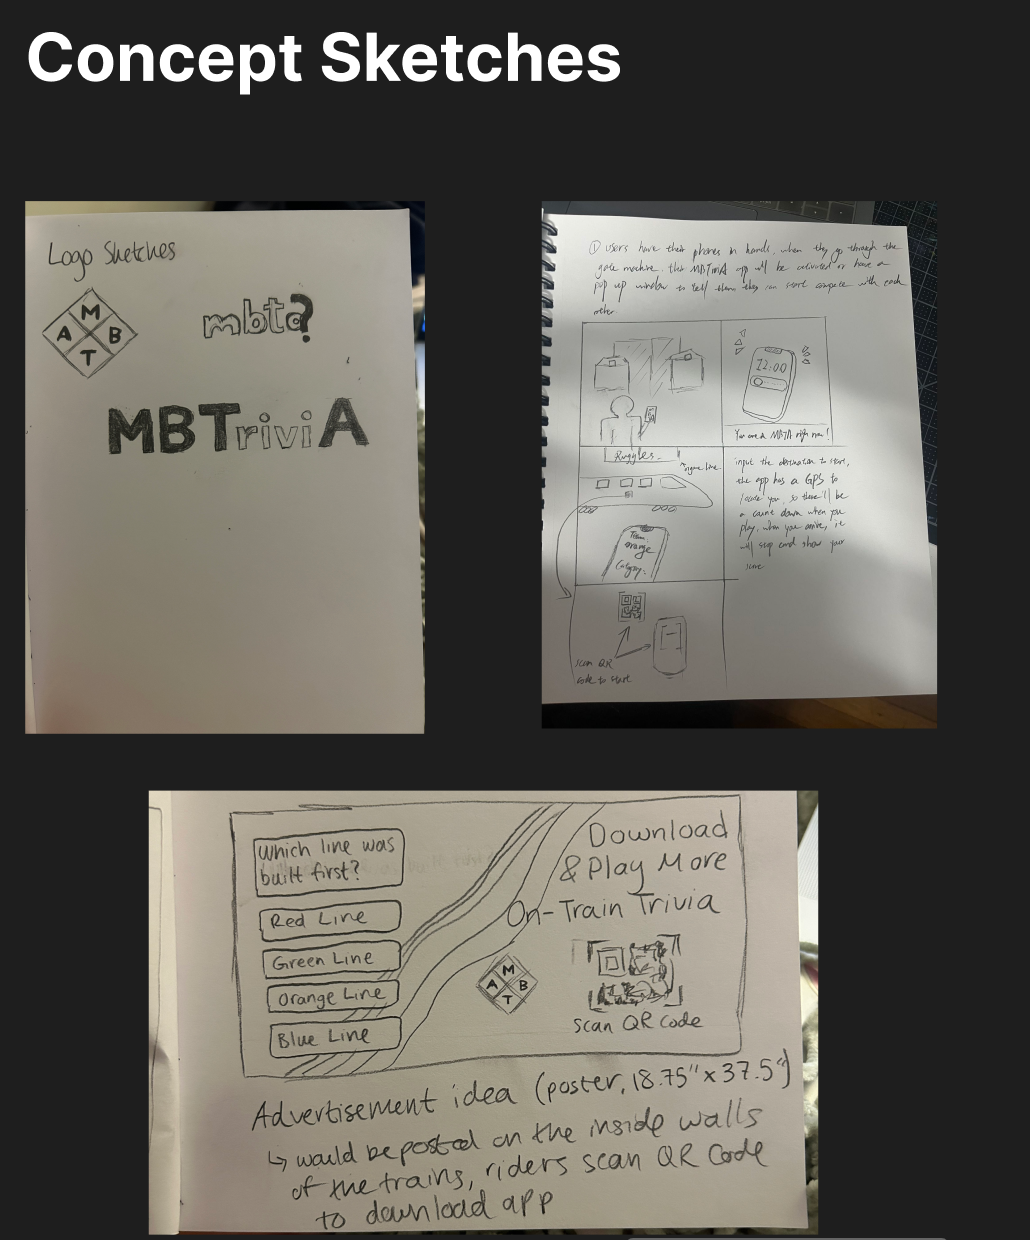 Concept Sketches
Logo Sketches
M
A B
T
mbta?
MBTriviA
① users have their phones in hands, when they go through the
gate machine. their MBTriviA app will be activated or have a
pop up window to tell them they can start compete with each
other.
12:00
You are a MBTA right now!
Ruggles
orange line
input the destination to start,
the app has a GPS to
locate you. so there'll be
a count down when you
play. when you arrive, it
will stop and show your
score
Team:
orange
Category:
scan QR
code to start
Which line was
built first?
Red Line
Green Line
Orange Line
Blue Line
Download
& Play More
On-Train Trivia
M
A B
T
scan QR code
Advertisement idea (poster, 18.75" x 37.5")
↳ would be posted on the inside walls
of the trains, riders scan QR Code
to download app